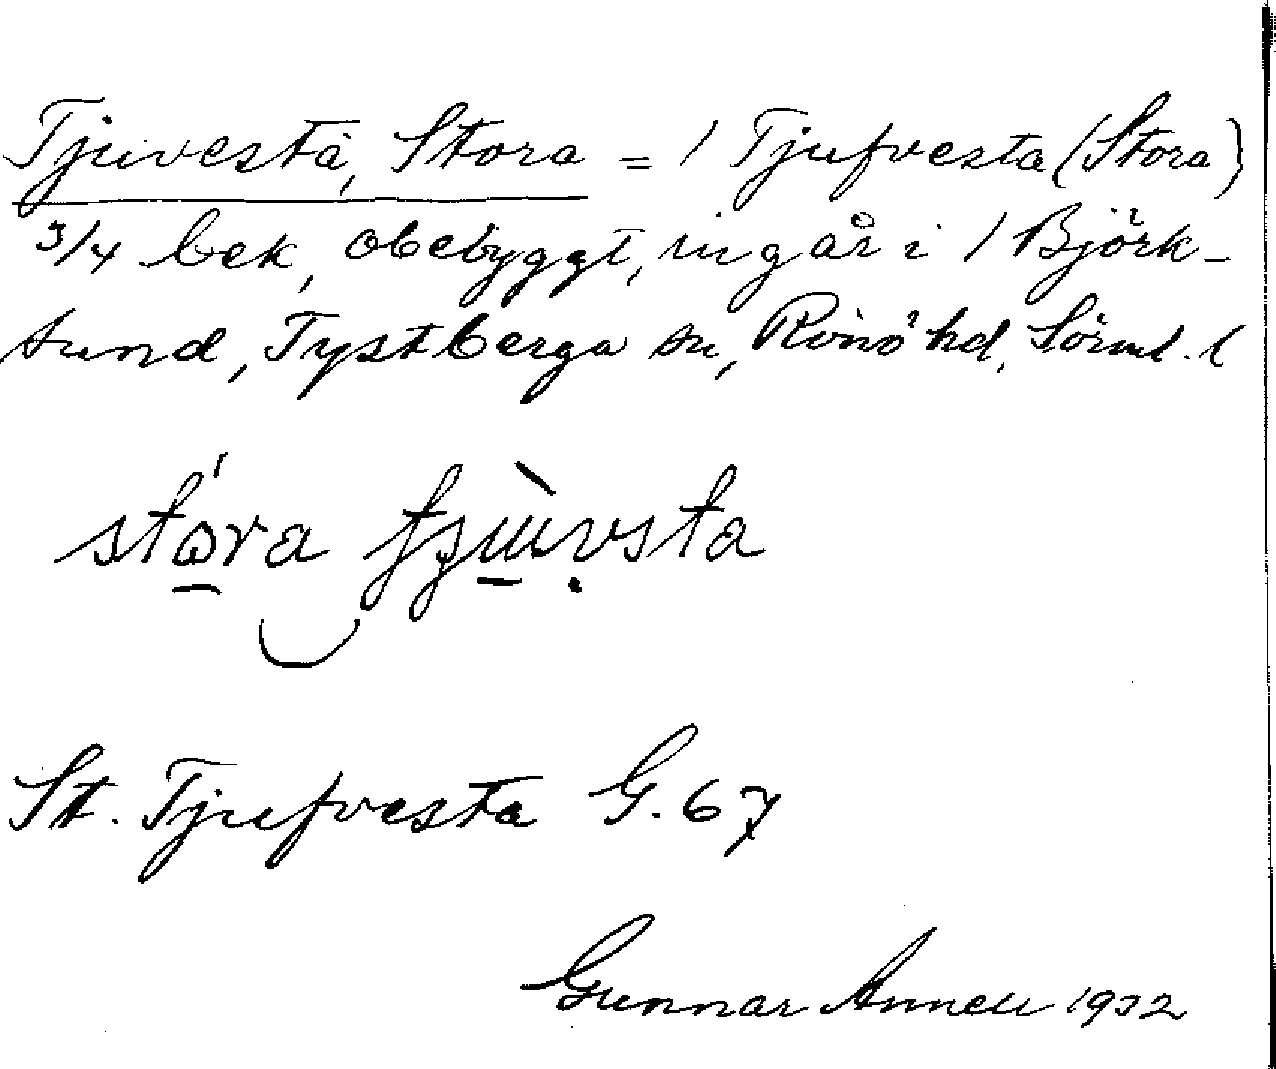 Tjuvesta, Stora = / Tjufvesta (Stora)
3/4 bek, obebyggt, ingår i / Björk-
sund, Tystberga sn, Rönö hd, Sörml. l
stóra tjùvsta
St. Tjufvesta G. 67
Gunnar Annell 1932